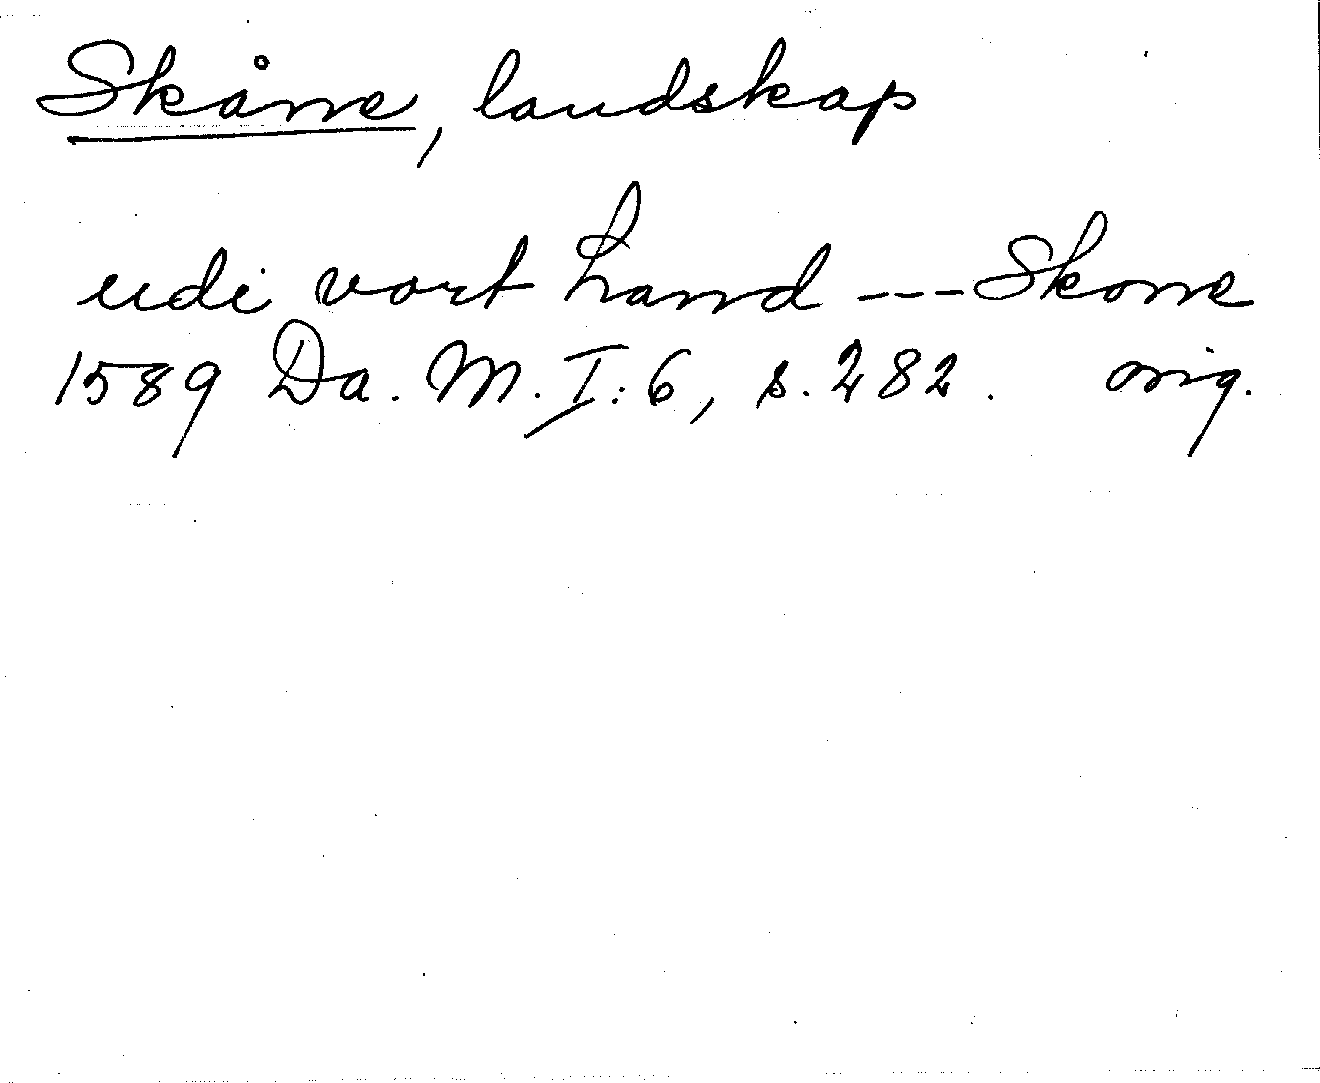 Skåne, landskap
udi vort Land --- Skone
1589 Da. M. I:6, s. 282. orig.